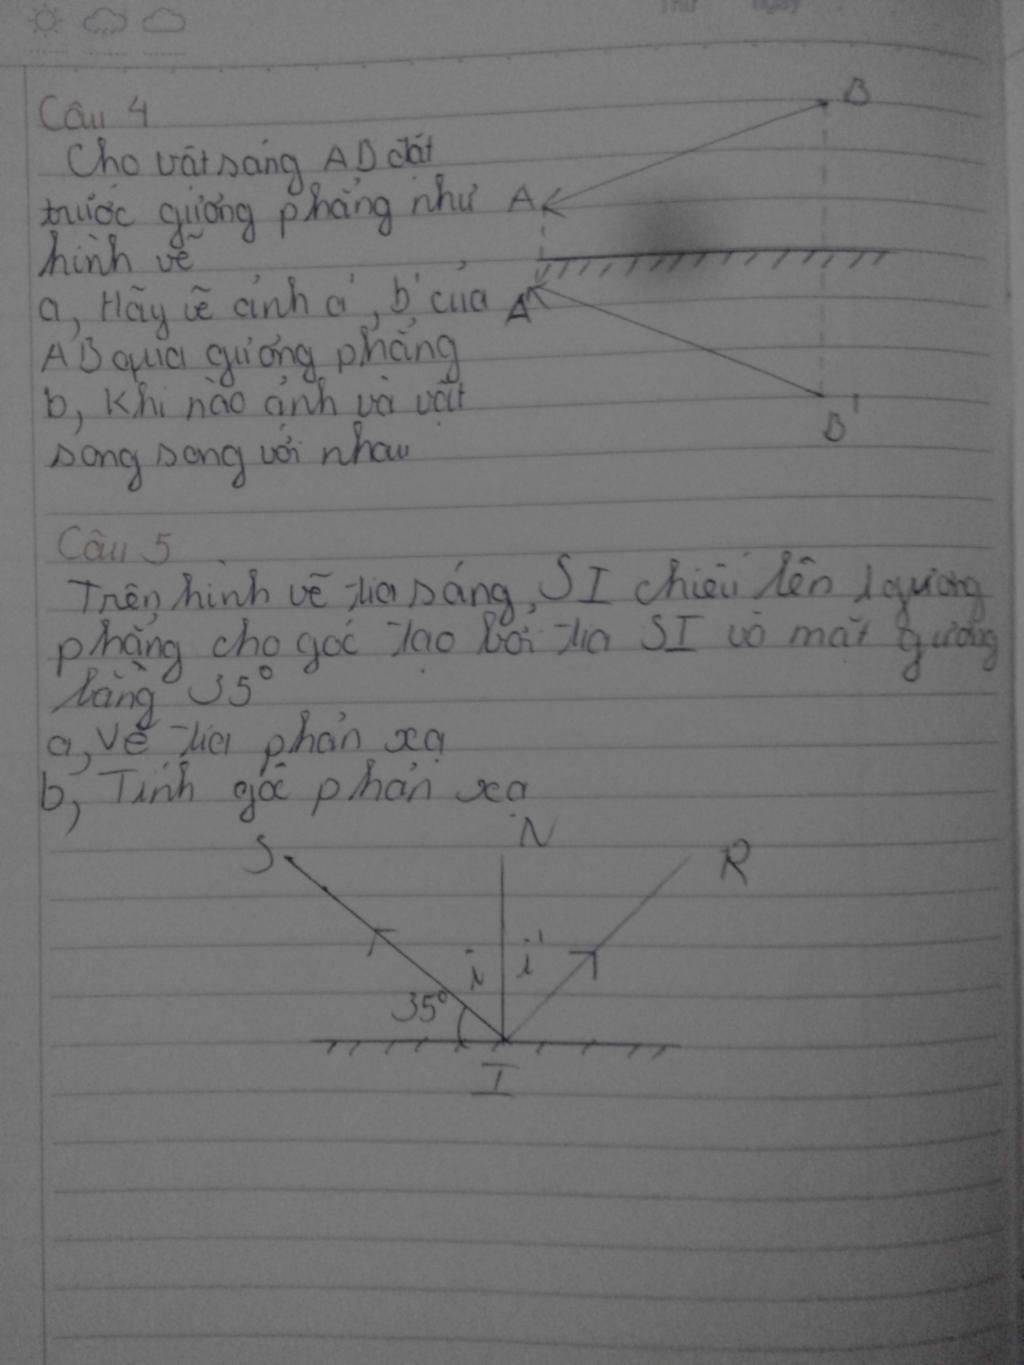 Thứ ngày
Câu 4
Cho vật sáng AB đặt
trước gương phẳng như
hình vẽ
a, Hãy vẽ ảnh a', b' của
AB qua gương phẳng
b, Khi nào ảnh và vật
song song với nhau
B
A
A'
B'
Câu 5
Trên hình vẽ tia sáng SI chiếu lên 1 gương
phẳng cho góc tạo bởi tia SI và mặt gương
bằng 35°
a, Vẽ tia phản xạ
b, Tính góc phản xạ
S N R
i i'
35°
I